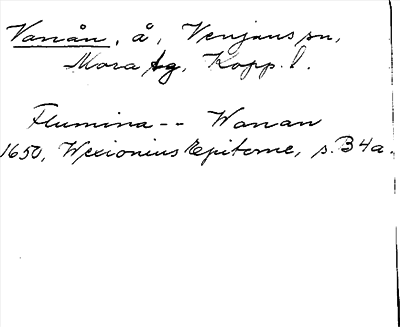 Vanån, å, Venjans sn,
Mora tg, Kopp. l.
Flumina -- Wanan
1650, Wexionius Epitome, s. B4a.